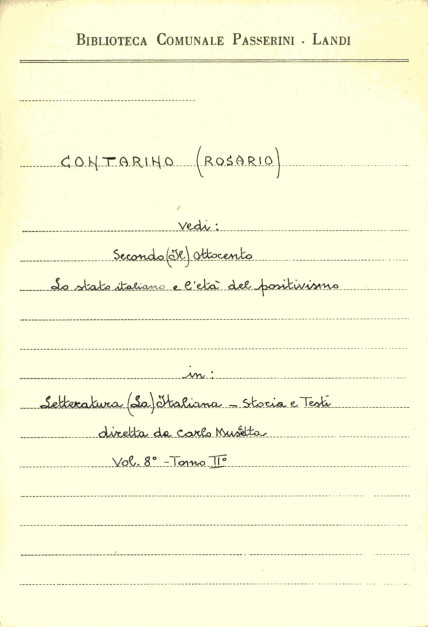 BIBLIOTECA COMUNALE PASSERINI - LANDI
CONTARINO (ROSARIO)
Vedi:
Secondo (Il) Ottocento
Lo stato italiano e l'età del positivismo
in:
Letteratura (La) Italiana - Storia e Testi
diretta da Carlo Muscetta
Vol. 8° - Tomo II°